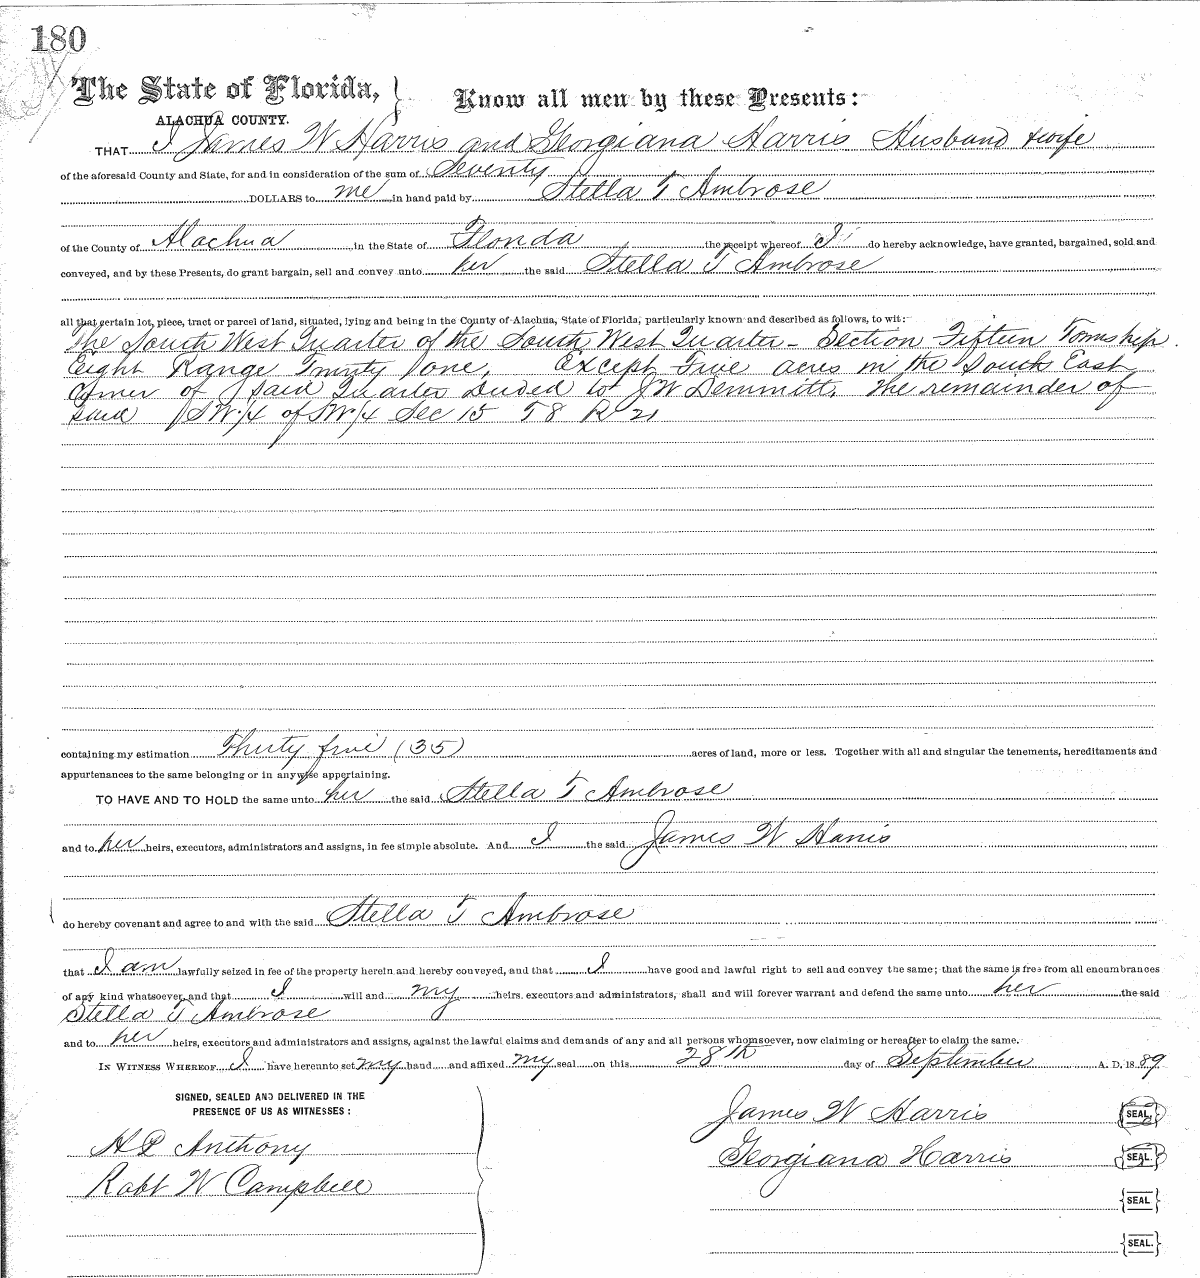 180
The State of Florida,
Know all men by these Presents:
ALACHUA COUNTY.
THAT I James W Harris and Georgiana Harris Husband & wife
of the aforesaid County and State, for and in consideration of the sum of Seventy
DOLLARS to me in hand paid by Stella T Ambrose
of the County of Alachua in the State of Florida the receipt whereof I do hereby acknowledge, have granted, bargained, sold and
conveyed, and by these Presents, do grant bargain, sell and convey unto her the said Stella T Ambrose
all that certain lot, piece, tract or parcel of land, situated, lying and being in the County of Alachua, State of Florida, particularly known and described as follows, to wit:
The South West Quarter of the South West Quarter - Section Fifteen Township
Eight Range Twenty one, Except Five acres in the South East
Corner of said Quarter Deeded to J W Demmitt, the remainder of
said SW/4 of SW/4 Sec 15 T 8 R 21
containing my estimation Thirty five (35) acres of land, more or less. Together with all and singular the tenements, hereditaments and
appurtenances to the same belonging or in anywise appertaining.
TO HAVE AND TO HOLD the same unto her the said Stella T Ambrose
and to her heirs, executors, administrators and assigns, in fee simple absolute. And I the said James W Harris
do hereby covenant and agree to and with the said Stella T Ambrose
that I am lawfully seized in fee of the property herein and hereby conveyed, and that I have good and lawful right to sell and convey the same; that the same is free from all encumbrances
of any kind whatsoever, and that I will and my heirs, executors and administrators, shall and will forever warrant and defend the same unto her the said
Stella T Ambrose
and to her heirs, executors and administrators and assigns, against the lawful claims and demands of any and all persons whomsoever, now claiming or hereafter to claim the same.
IN WITNESS WHEREOF I have hereunto set my hand and affixed my seal on this 28th day of September A. D. 1889
SIGNED, SEALED AND DELIVERED IN THE
PRESENCE OF US AS WITNESSES:
James W Harris SEAL.
H P Anthony
Georgiana Harris SEAL.
Robt W Campbell
SEAL.
SEAL.